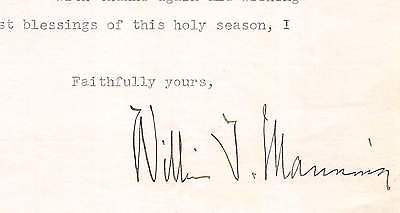 with thanks again and wishing
st blessings of this holy season, I
Faithfully yours,
William T. Manning